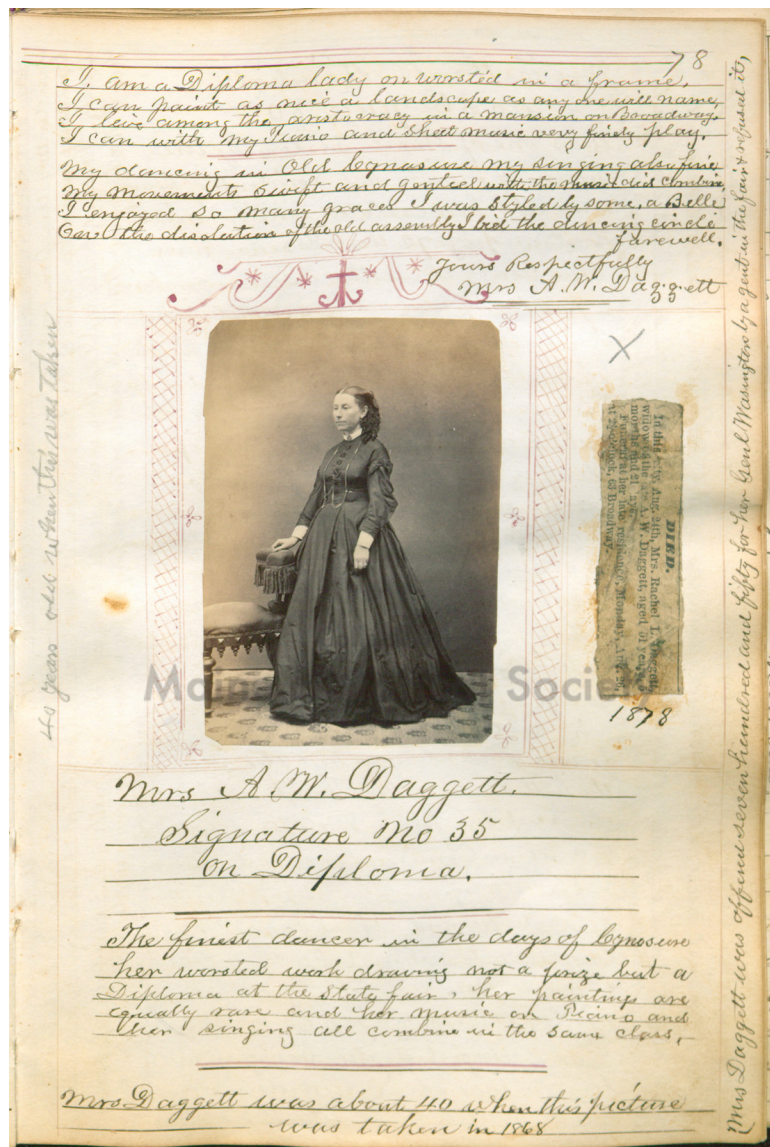 78
I am a Diploma lady on worsted in a frame,
I can paint as nice a landscape as any one will name,
I live among the aristocracy in a mansion on Broadway,
I can with my Piano and sheet music very finely play.
My dancing in Old Cynosure my singing also fine
My movements swift and genteel with the music did combine,
I enjoyed so many graces I was styled by some, a Belle
the disolution of the old assembly I bid the dancing circle
farewell.
Yours Respectfully
Mrs A. W. Daggett
40 years old when this was taken
X
DIED.
In this city, Aug. 24th, Mrs. Rachel L. Daggett,
widow of the late A. W. Daggett, aged 51 years,
months and 21
Funeral at her late residence, Monday, Aug.
at o'clock, 63 Broadway.
1878
Maine Historical Society
Mrs A. W. Daggett.
Signature No 35
on Diploma.
The finest dancer in the days of Cynosure
her worsted work drawing not a prize but a
Diploma at the State fair, her paintings are
equally rare and her music on Piano and
her singing all combine in the same class,
Mrs. Daggett was about 40 when this picture
was taken in 1868
(Mrs Daggett was offered seven hundred and fifty for her Genl Wasington by agent in the fair & refused it,